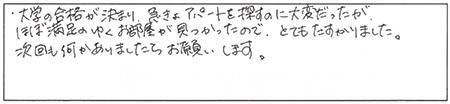 ・大学の合格が決まり、急きょアパートを探すのに大変だったが、
ほぼ満足のゆくお部屋が見つかったので、とてもたすかりました。
次回も何かありましたらお願いします。